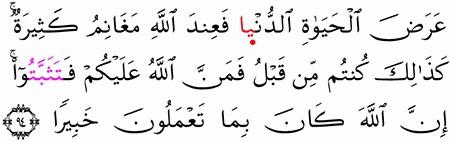 عَرَضَ ٱلْحَيَوٰةِ ٱلدُّنْيا فَعِندَ ٱللَّهِ مَغَانِمُ كَثِيرَةٌۚ
كَذَٰلِكَ كُنتُم مِّن قَبْلُ فَمَنَّ ٱللَّهُ عَلَيْكُمْ فَتَثَبَّتُوٓا۟ۚ
إِنَّ ٱللَّهَ كَانَ بِمَا تَعْمَلُونَ خَبِيرًا ٩٤